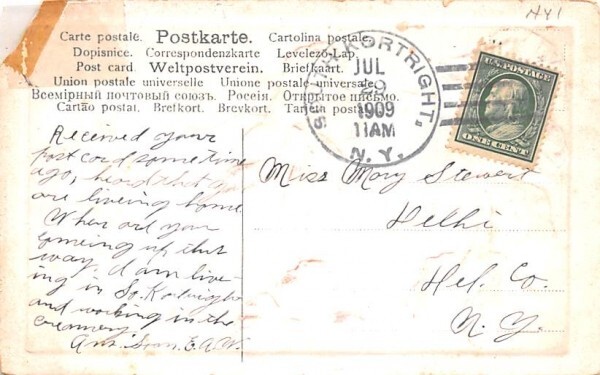 NY1
Carte postale. Postkarte. Cartolina postale.
Dopisnice. Correspondenzkarte Levelező-Lap.
Post card Weltpostverein. Briefkaart.
Union postale universelle Unione postale universale.
Всемірный почтовый союзъ. Россия. Открытое письмо.
Cartão postal. Brefkort. Brevkort. Tarjeta postal.
SOUTH KORTRIGHT,
JUL
1909
11AM
N. Y.
U.S. POSTAGE
ONE CENT
Received your
post cord some time
ago, heard that you
are liveing home.
When are you
comeing up this
way. I am live-
ing in So. Kortright
and working in the
creamery.
Ans. Soon. E.A.W.
Miss Mary Stewart
Delhi
Del. Co.
N. Y.